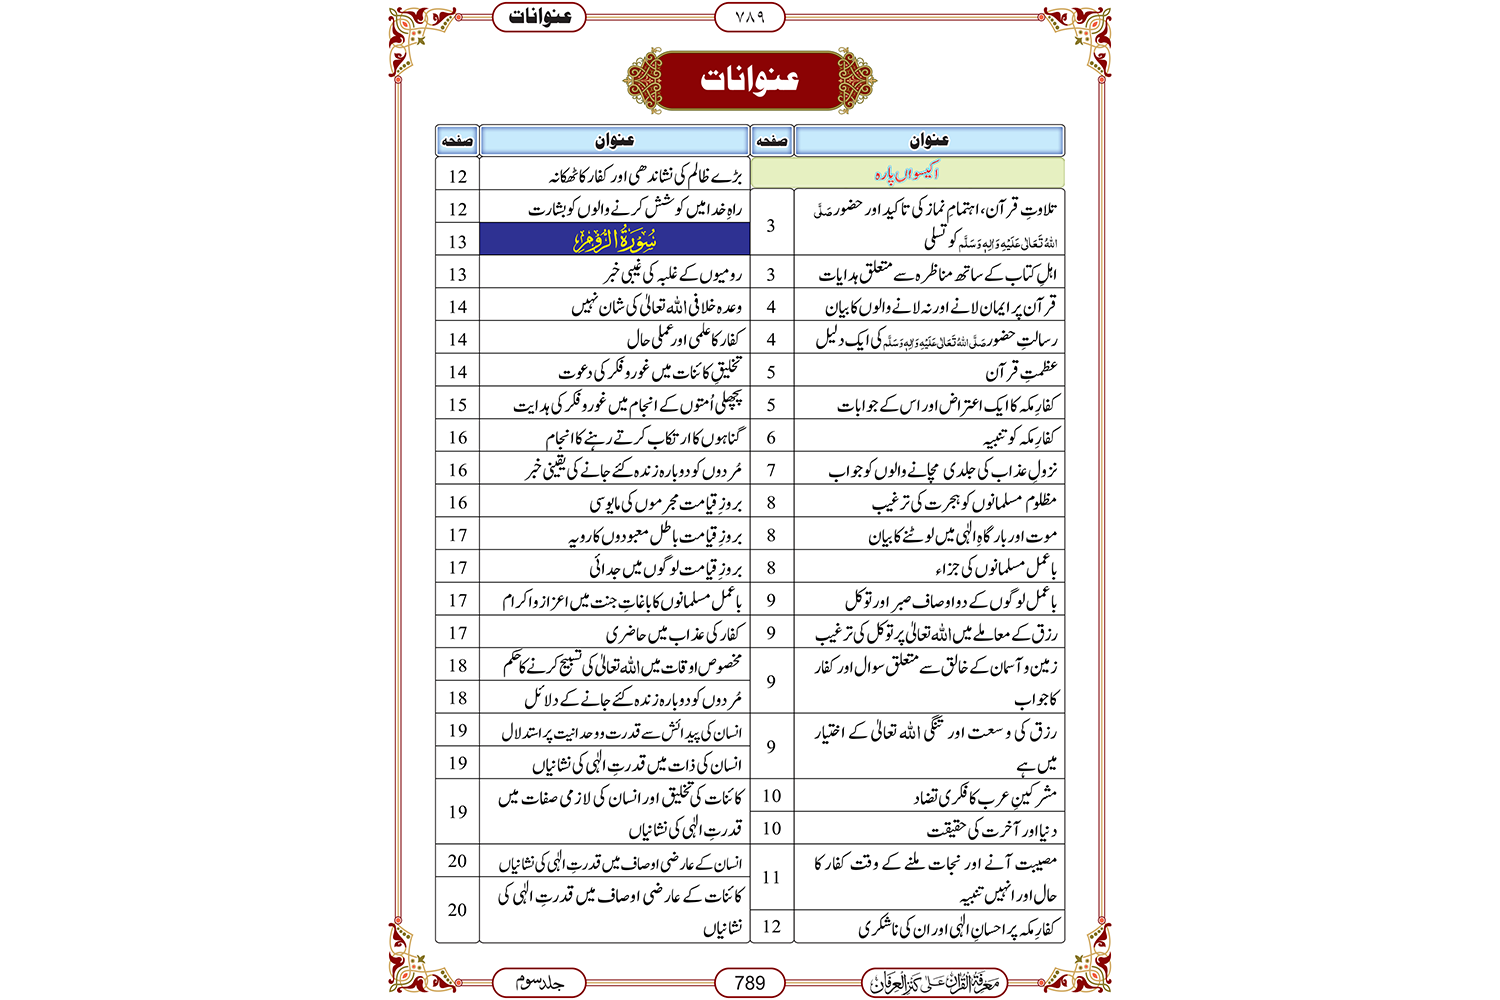 عنوانات
۷۸۹
عنوانات
عنوان صفحہ
اکیسواں پارہ
تلاوتِ قرآن، اہتمامِ نماز کی تاکید اور حضور صَلَّی
اللہُ تَعَالٰی عَلَیْہِ وَاٰلِہٖ وَسَلَّم کو تسلی 3
اہلِ کتاب کے ساتھ مناظرہ سے متعلق ہدایات 3
قرآن پر ایمان لانے اور نہ لانے والوں کا بیان 4
رسالتِ حضور صَلَّی اللہُ تَعَالٰی عَلَیْہِ وَاٰلِہٖ وَسَلَّم کی ایک دلیل 4
عظمتِ قرآن 5
کفارِ مکہ کا ایک اعتراض اور اس کے جوابات 5
کفارِ مکہ کو تنبیہ 6
نزولِ عذاب کی جلدی مچانے والوں کو جواب 7
مظلوم مسلمانوں کو ہجرت کی ترغیب 8
موت اور بارگاہِ الٰہی میں لوٹنے کا بیان 8
باعمل مسلمانوں کی جزاء 8
باعمل لوگوں کے دو اوصاف صبر اور توکل 9
رزق کے معاملے میں اللہ تعالیٰ پر توکل کی ترغیب 9
زمین و آسمان کے خالق سے متعلق سوال اور کفار
کا جواب 9
رزق کی وسعت اور تنگی اللہ تعالیٰ کے اختیار
میں ہے 9
مشرکینِ عرب کا فکری تضاد 10
دنیا اور آخرت کی حقیقت 10
مصیبت آنے اور نجات ملنے کے وقت کفار کا
حال اور انہیں تنبیہ 11
کفارِ مکہ پر احسانِ الٰہی اور ان کی ناشکری 12
عنوان صفحہ
بڑے ظالم کی نشاندھی اور کفار کا ٹھکانہ 12
راہِ خدا میں کوشش کرنے والوں کو بشارت 12
سُوْرَۃُ الرُّوْم 13
رومیوں کے غلبہ کی غیبی خبر 13
وعدہ خلافی اللہ تعالیٰ کی شان نہیں 14
کفار کا علمی اور عملی حال 14
تخلیقِ کائنات میں غور و فکر کی دعوت 14
پچھلی اُمتوں کے انجام میں غور و فکر کی ہدایت 15
گناہوں کا ارتکاب کرتے رہنے کا انجام 16
مُردوں کو دوبارہ زندہ کئے جانے کی یقینی خبر 16
بروزِ قیامت مجرموں کی مایوسی 16
بروزِ قیامت باطل معبودوں کا رویہ 17
بروزِ قیامت لوگوں میں جدائی 17
باعمل مسلمانوں کا باغاتِ جنت میں اعزاز و اکرام 17
کفار کی عذاب میں حاضری 17
مخصوص اوقات میں اللہ تعالیٰ کی تسبیح کرنے کا حکم 18
مُردوں کو دوبارہ زندہ کئے جانے کے دلائل 18
انسان کی پیدائش سے قدرت و وحدانیت پر استدلال 19
انسان کی ذات میں قدرتِ الٰہی کی نشانیاں 19
کائنات کی تخلیق اور انسان کی لازمی صفات میں
قدرتِ الٰہی کی نشانیاں 19
انسان کے عارضی اوصاف میں قدرتِ الٰہی کی نشانیاں 20
کائنات کے عارضی اوصاف میں قدرتِ الٰہی کی
نشانیاں 20
معرفۃ القرآن علیٰ کنز العرفان
789
جلد سوم